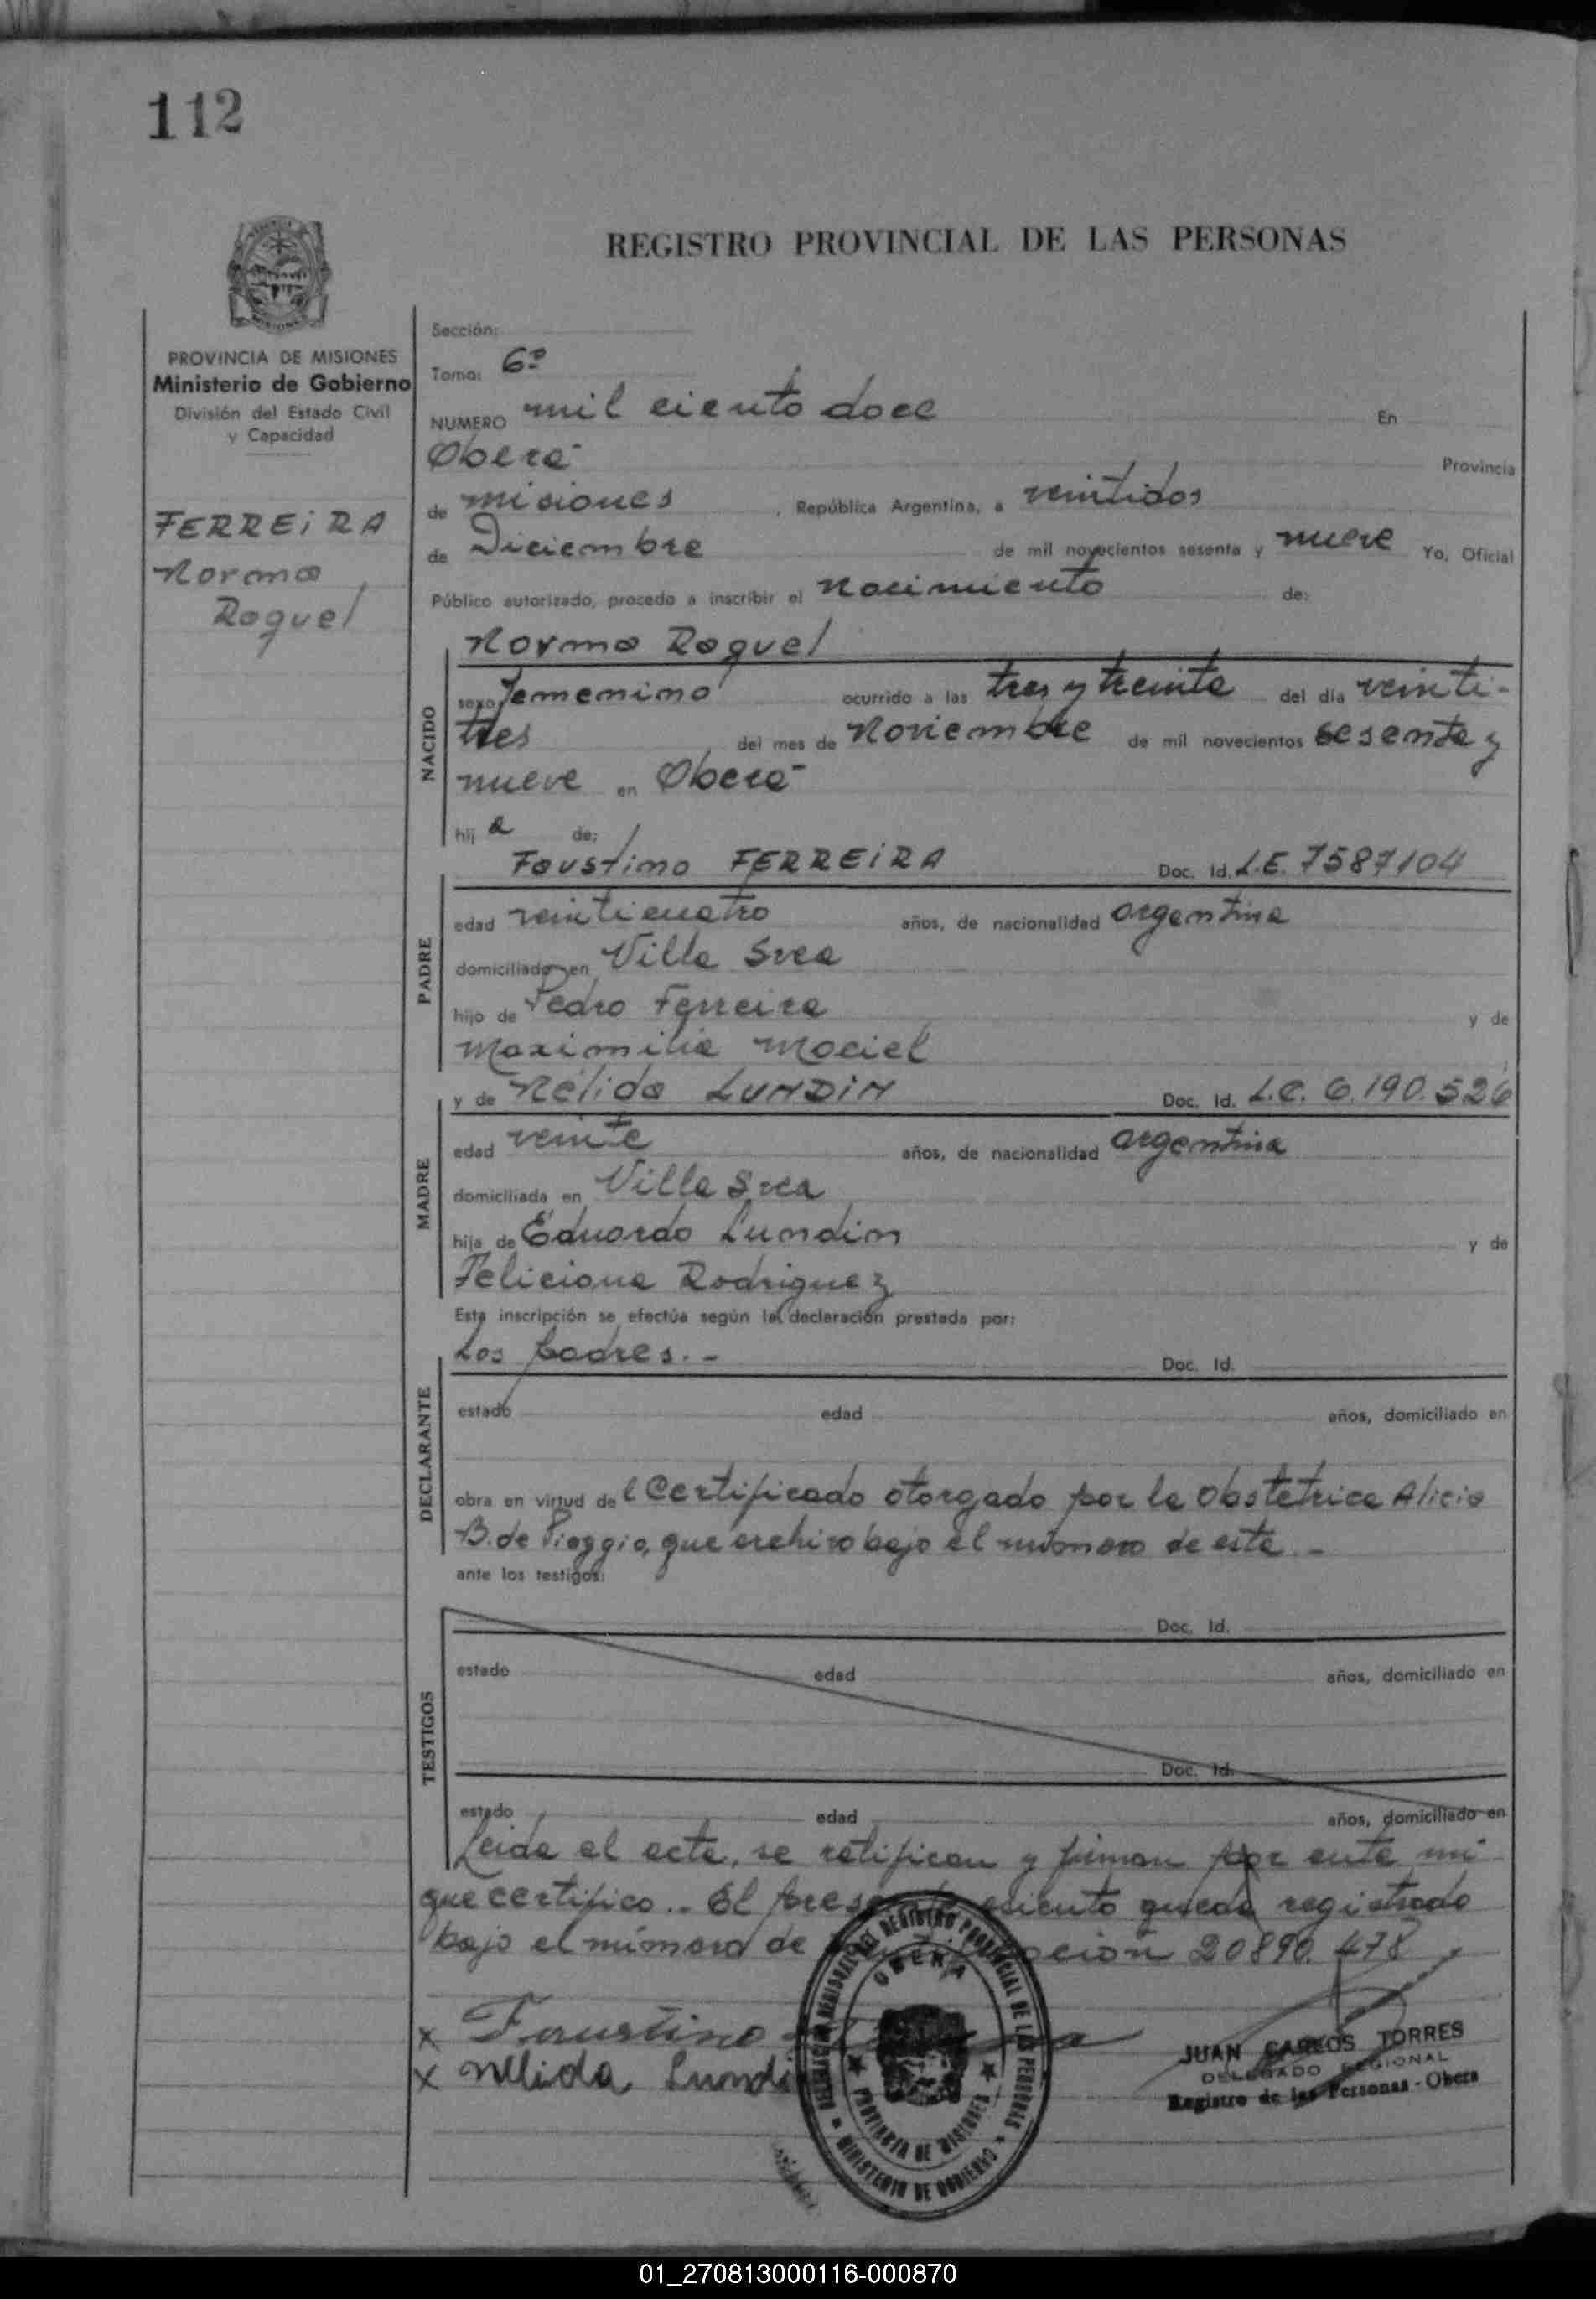 112
REGISTRO PROVINCIAL DE LAS PERSONAS
PROVINCIA DE MISIONES
Ministerio de Gobierno
División del Estado Civil
y Capacidad
FERREIRA
Norma
Raquel
Sección:
Tomo: 6º
NUMERO mil ciento doce En
Oberá Provincia
de Misiones, República Argentina, a veintidos
de Diciembre de mil novecientos sesenta y nueve Yo, Oficial
Público autorizado, procedo a inscribir el Nacimiento de:
NACIDO
Norma Raquel
sexo femenino ocurrido a las tres y treinta del día veinti-
tres del mes de Noviembre de mil novecientos sesenta y
nueve en Oberá
hij a de:
PADRE
Faustino FERREIRA Doc. Id. L.E. 7587104
edad veinticuatro años, de nacionalidad argentina
domiciliado en Villa Svea
hijo de Pedro Ferreira y de
Maximilia Maciel
MADRE
y de Nélida LUNDIN Doc. Id. L.C. 6.190.526
edad veinte años, de nacionalidad argentina
domiciliada en Villa Svea
hija de Eduardo Lundin y de
Feliciana Rodriguez
DECLARANTE
Esta inscripción se efectúa según la declaración prestada por:
Los padres.- Doc. Id.
estado edad años, domiciliado en
obra en virtud de l Certificado otorgado por la Obstetrica Alicia
B. de Pioggio, que archivo bajo el número de esta.-
ante los testigos:
TESTIGOS
Doc. Id.
estado edad años, domiciliado en
Doc. Id.
estado edad años, domiciliado en
Leida el acta, se ratifican y firman por ante mi
que certifico.. El asiento queda registrado
bajo el número de 20890.478
x Faustino
x Nélida Lundi
DELEGACION DEL REGISTRO PROVINCIAL DE LAS PERSONAS
OBERA
PROVINCIA DE MISIONES
MINISTERIO DE GOBIERNO
JUAN CARLOS TORRES
DELEGADO REGIONAL
Registro de las Personas - Obera
01_270813000116-000870